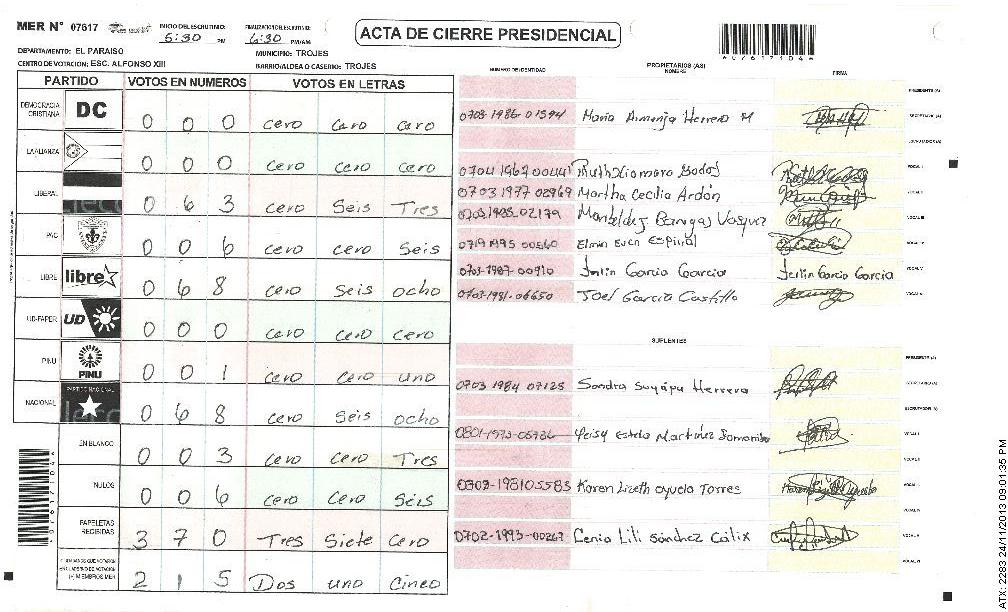 MER N° 07617 INICIO DEL ESCRUTINIO: 5:30 PM FINALIZACION DEL ESCRUTINIO: 6:30 PM/AM
ACTA DE CIERRE PRESIDENCIAL
DEPARTAMENTO: EL PARAISO MUNICIPIO: TROJES
CENTRO DE VOTACION: ESC. ALFONSO XIII BARRIO/ALDEA O CASERIO: TROJES
PARTIDO VOTOS EN NUMEROS VOTOS EN LETRAS
DEMOCRACIA CRISTIANA DC 0 0 0 cero cero cero
LA ALIANZA 0 0 0 cero cero cero
LIBERAL 0 6 3 cero Seis Tres
PAC 0 0 6 cero cero Seis
LIBRE libre 0 6 8 cero seis ocho
UD-FAPER UD 0 0 0 cero cero cero
PINU PINU 0 0 1 cero cero uno
NACIONAL PARTIDO NACIONAL 0 6 8 cero Seis ocho
EN BLANCO 0 0 3 cero cero Tres
NULOS 0 0 6 cero cero Seis
PAPELETAS RECIBIDAS 3 7 0 Tres Siete cero
MIEMBROS MER 2 1 5 Dos uno Cinco
NUMERO DE IDENTIDAD PROPIETARIOS (AS) NOMBRE FIRMA
PRESIDENTE (A)
0703-1986-01594 Maria Armenja Herrera M SECRETARIO (A)
ESCRUTADOR (A)
0704 1967 00441 Ruth Xiomara Godoy VOCAL I
0703 1977 02969 Martha Cecilia Ardón VOCAL II
0703-1988-02179 Banegas Vasquez VOCAL III
0719 1995 00560 Elmin Espinal VOCAL IV
0703-1987-00910 Jerlin Garcia Garcia Jerlin Garcia Garcia VOCAL V
0703-1981-06650 Joel Garcia Castillo VOCAL VI
SUPLENTES
PRESIDENTE (A)
0703 1984 07125 Sandra Suyapa Herrera SECRETARIO (A)
ESCRUTADOR (A)
0801-1973-05786 Yeisy Estela Martínez VOCAL I
VOCAL II
0703-198105583 Karen Lizeth ayuela Torres VOCAL III
VOCAL IV
0702-1993-00267 Lenia Lili Sánchez Cálix VOCAL V
VOCAL VI
ATX: 2283 24/11/2013 09:01:35 PM